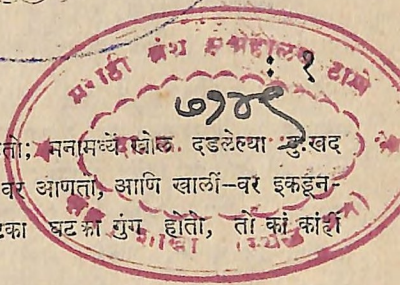 मराठी ग्रंथ संग्रहालय ठाणे
: १
७१४९
तो; मनामध्यें खोल दडलेल्या दुःखद
वर आणतां, आणि खालीं-वर इकडून-
टका घटका गुंग होतो, तो कां कांहीं
शाखा